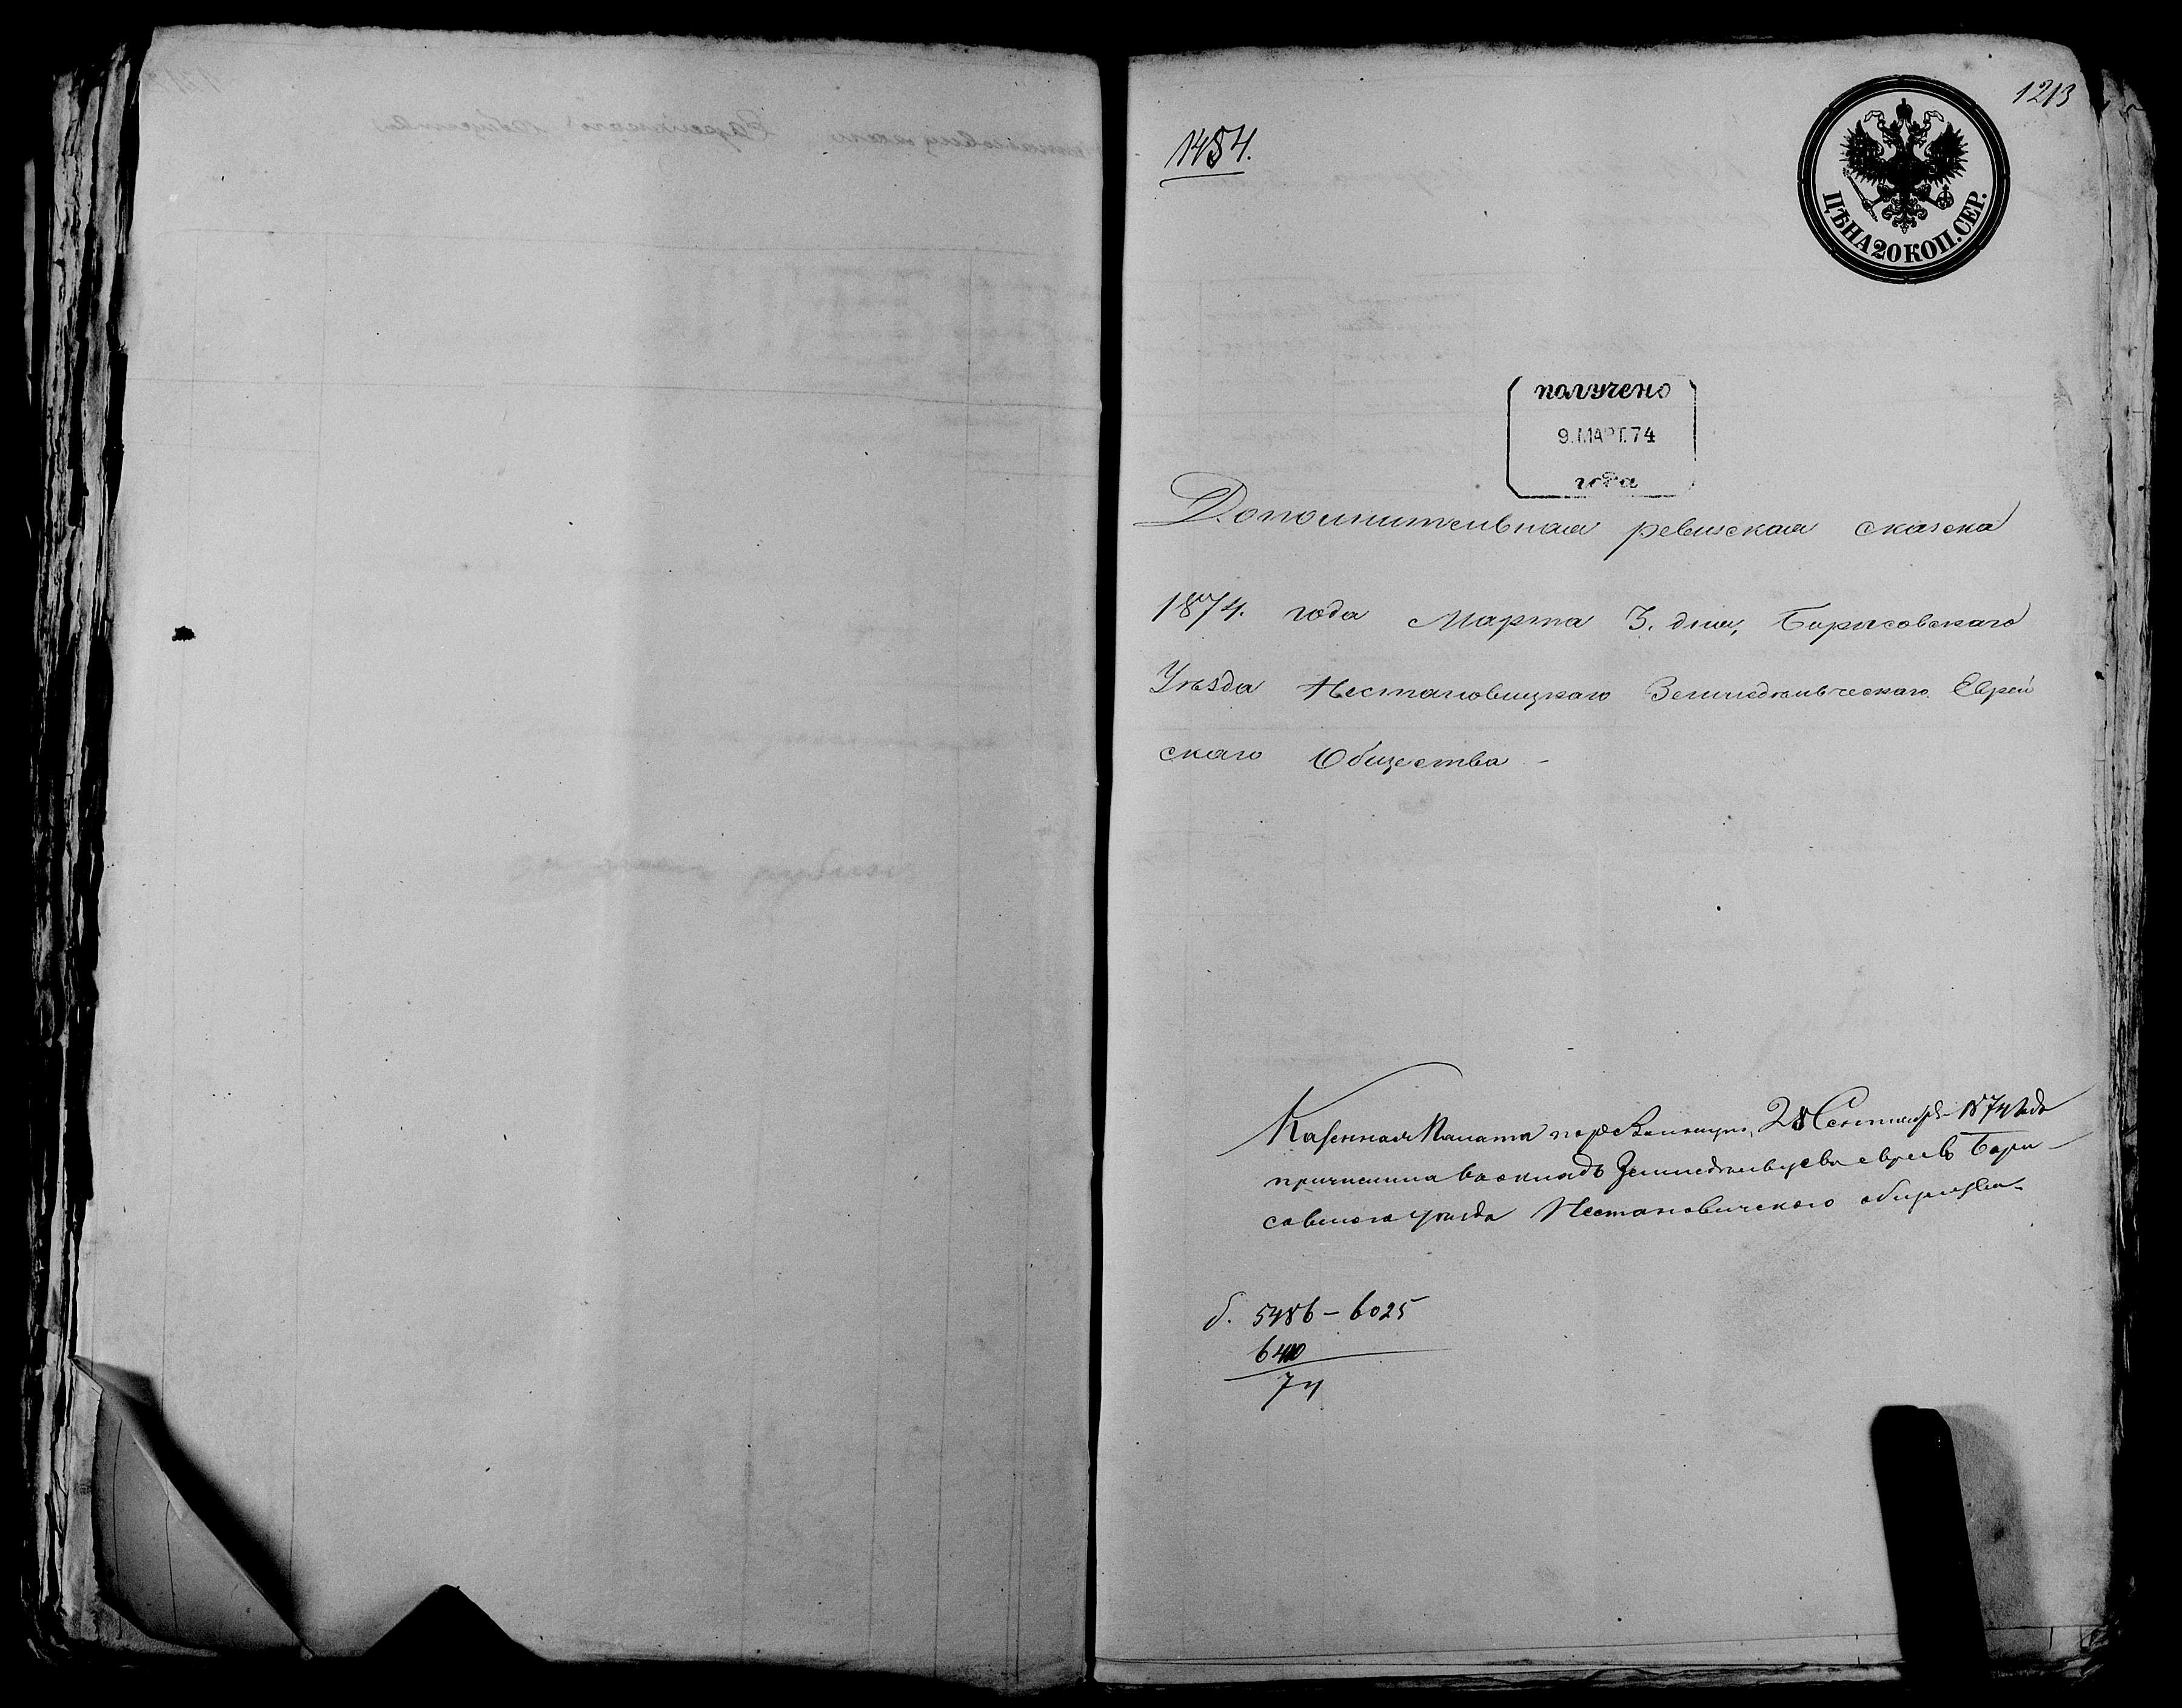 1213
1484.
ЦѢНА 20 КОП. СЕР.
получено
9. МАРТ. 74
года
Дополнительная ревизская сказка
1874. года Марта 3. дня, Борисовскаго
Уѣзда Нестановицкаго Земледѣльческаго Еврей
скаго Общества -
Казенная Палата 28 Сентября 1874 года
причислила въ окладъ Земледѣльцевъ евреевъ Бори-
совскаго уѣзда Нестановичскаго
д. 5486 - 6025
74